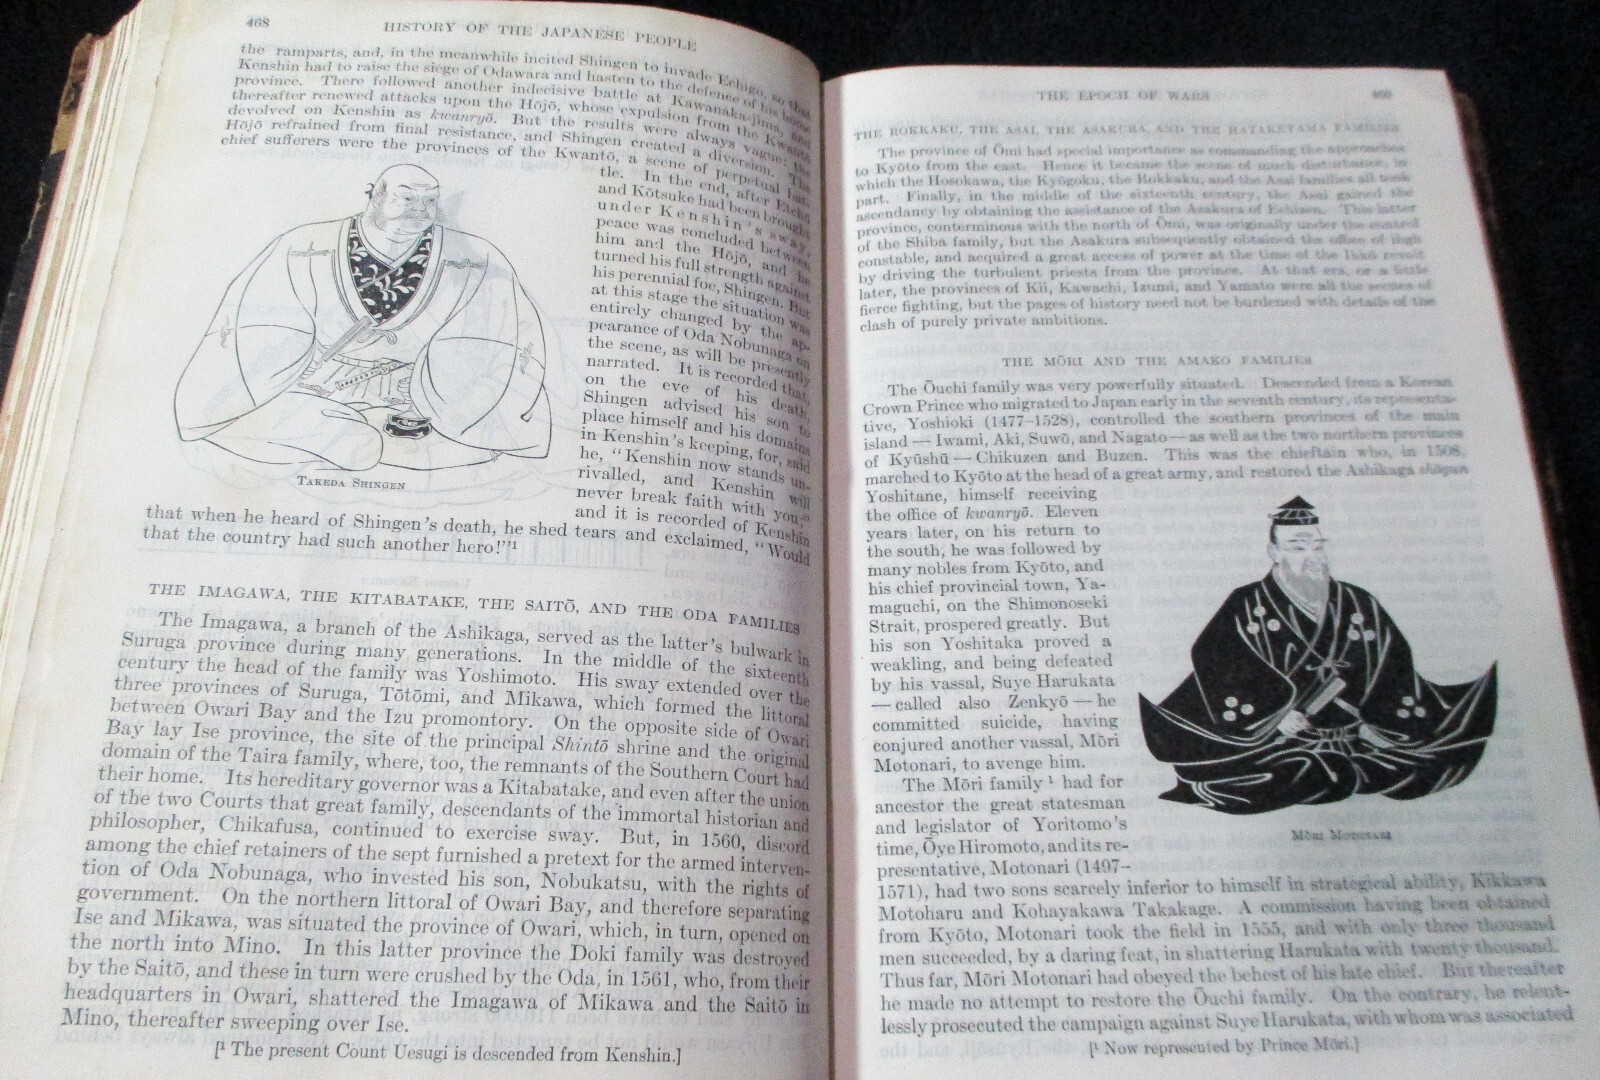 468
HISTORY OF THE JAPANESE PEOPLE
the ramparts, and, in the meanwhile incited Shingen to invade Echigo, so that
Kenshin had to raise the siege of Odawara and hasten to the defence of his home
province. There followed another indecisive battle at Kawanaka-jima, and
thereafter renewed attacks upon the Hōjō, whose expulsion from the Kwantō
devolved on Kenshin as kwanryō. But the results were always vague: the
Hōjō refrained from final resistance, and Shingen created a diversion. The
chief sufferers were the provinces of the Kwantō, a scene of perpetual bat-
tle. In the end, after Etchū
and Kōtsuke had been brought
under Kenshin's sway,
peace was concluded between
him and the Hōjō, and he
turned his full strength against
his perennial foe, Shingen. But
at this stage the situation was
entirely changed by the ap-
pearance of Oda Nobunaga on
the scene, as will be presently
narrated. It is recorded that,
on the eve of his death,
Shingen advised his son to
place himself and his domains
in Kenshin's keeping, for, said
he, "Kenshin now stands un-
rivalled, and Kenshin will
never break faith with you;"
and it is recorded of Kenshin
TAKEDA SHINGEN
that when he heard of Shingen's death, he shed tears and exclaimed, "Would
that the country had such another hero!"¹
THE IMAGAWA, THE KITABATAKE, THE SAITŌ, AND THE ODA FAMILIES
The Imagawa, a branch of the Ashikaga, served as the latter's bulwark in
Suruga province during many generations. In the middle of the sixteenth
century the head of the family was Yoshimoto. His sway extended over the
three provinces of Suruga, Tōtōmi, and Mikawa, which formed the littoral
between Owari Bay and the Izu promontory. On the opposite side of Owari
Bay lay Ise province, the site of the principal Shintō shrine and the original
domain of the Taira family, where, too, the remnants of the Southern Court had
their home. Its hereditary governor was a Kitabatake, and even after the union
of the two Courts that great family, descendants of the immortal historian and
philosopher, Chikafusa, continued to exercise sway. But, in 1560, discord
among the chief retainers of the sept furnished a pretext for the armed interven-
tion of Oda Nobunaga, who invested his son, Nobukatsu, with the rights of
government. On the northern littoral of Owari Bay, and therefore separating
Ise and Mikawa, was situated the province of Owari, which, in turn, opened on
the north into Mino. In this latter province the Doki family was destroyed
by the Saitō, and these in turn were crushed by the Oda, in 1561, who, from their
headquarters in Owari, shattered the Imagawa of Mikawa and the Saitō in
Mino, thereafter sweeping over Ise.
[¹ The present Count Uesugi is descended from Kenshin.]
THE EPOCH OF WARS
469
THE ROKKAKU, THE ASAI, THE ASAKURA, AND THE HATAKEYAMA FAMILIES
The province of Ōmi had special importance as commanding the approaches
to Kyōto from the east. Hence it became the scene of much disturbance, in
which the Hosokawa, the Kyōgoku, the Rokkaku, and the Asai families all took
part. Finally, in the middle of the sixteenth century, the Asai gained the
ascendancy by obtaining the assistance of the Asakura of Echizen. This latter
province, conterminous with the north of Ōmi, was originally under the control
of the Shiba family, but the Asakura subsequently obtained the office of high
constable, and acquired a great access of power at the time of the Ikkō revolt
by driving the turbulent priests from the province. At that era, or a little
later, the provinces of Kii, Kawachi, Izumi, and Yamato were all the scenes of
fierce fighting, but the pages of history need not be burdened with details of the
clash of purely private ambitions.
THE MŌRI AND THE AMAKO FAMILIES
The Ōuchi family was very powerfully situated. Descended from a Korean
Crown Prince who migrated to Japan early in the seventh century, its representa-
tive, Yoshioki (1477–1528), controlled the southern provinces of the main
island — Iwami, Aki, Suwō, and Nagato — as well as the two northern provinces
of Kyūshū — Chikuzen and Buzen. This was the chieftain who, in 1508,
marched to Kyōto at the head of a great army, and restored the Ashikaga shōgun
Yoshitane, himself receiving
the office of kwanryō. Eleven
years later, on his return to
the south, he was followed by
many nobles from Kyōto, and
his chief provincial town, Ya-
maguchi, on the Shimonoseki
Strait, prospered greatly. But
his son Yoshitaka proved a
weakling, and being defeated
by his vassal, Suye Harukata
— called also Zenkyō — he
committed suicide, having
conjured another vassal, Mōri
Motonari, to avenge him.
The Mōri family ¹ had for
ancestor the great statesman
and legislator of Yoritomo's
time, Ōye Hiromoto, and its re-
presentative, Motonari (1497–
MŌRI MOTONARI
1571), had two sons scarcely inferior to himself in strategical ability, Kikkawa
Motoharu and Kohayakawa Takakage. A commission having been obtained
from Kyōto, Motonari took the field in 1555, and with only three thousand
men succeeded, by a daring feat, in shattering Harukata with twenty thousand.
Thus far, Mōri Motonari had obeyed the behest of his late chief. But thereafter
he made no attempt to restore the Ōuchi family. On the contrary, he relent-
lessly prosecuted the campaign against Suye Harukata, with whom was associated
[¹ Now represented by Prince Mōri.]